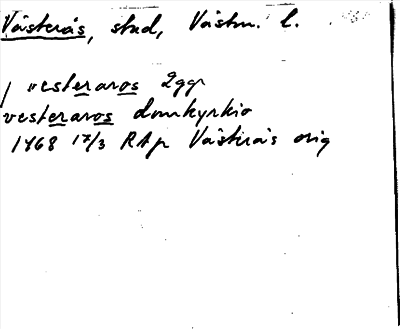 Västerås, stad, Västm. l.
j vesteraros 2ggr
vesteraros domkyrkio
1468 17/3 RAp Västerås orig